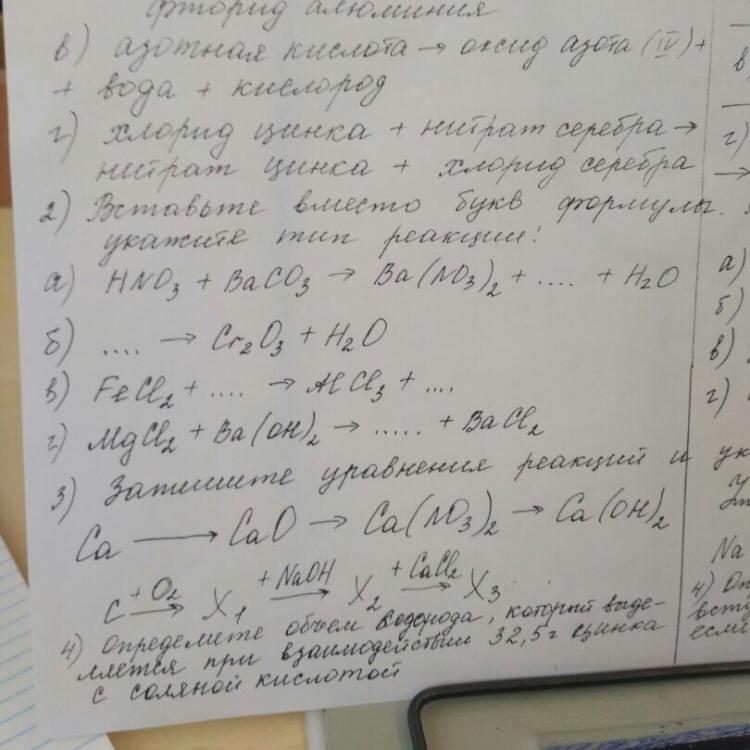 фторид алюминия
в) азотная кислота → оксид азота (IV) +
+ вода + кислород
г) хлорид цинка + нитрат серебра →
нитрат цинка + хлорид серебра
2) Вставьте вместо букв формулы.
укажите тип реакции!
а) HNO₃ + BaCO₃ → Ba(NO₃)₂ + .... + H₂O
б) .... → Cr₂O₃ + H₂O
в) FeCl₂ + .... → AlCl₃ + ....
г) MgCl₂ + Ba(OH)₂ → ..... + BaCl₂
3) Запишите уравнения реакций и
Ca → CaO → Ca(NO₃)₂ → Ca(OH)₂
C +O₂→ X₁ +NaOH→ X₂ +CaCl₂→ X₃
4) Определите объем водорода, который выде-
ляется при взаимодействии 32,5г цинка
с соляной кислотой
в
г)
→
а)
б)
в)
г)
ук
Na
4) Оп
всту
если